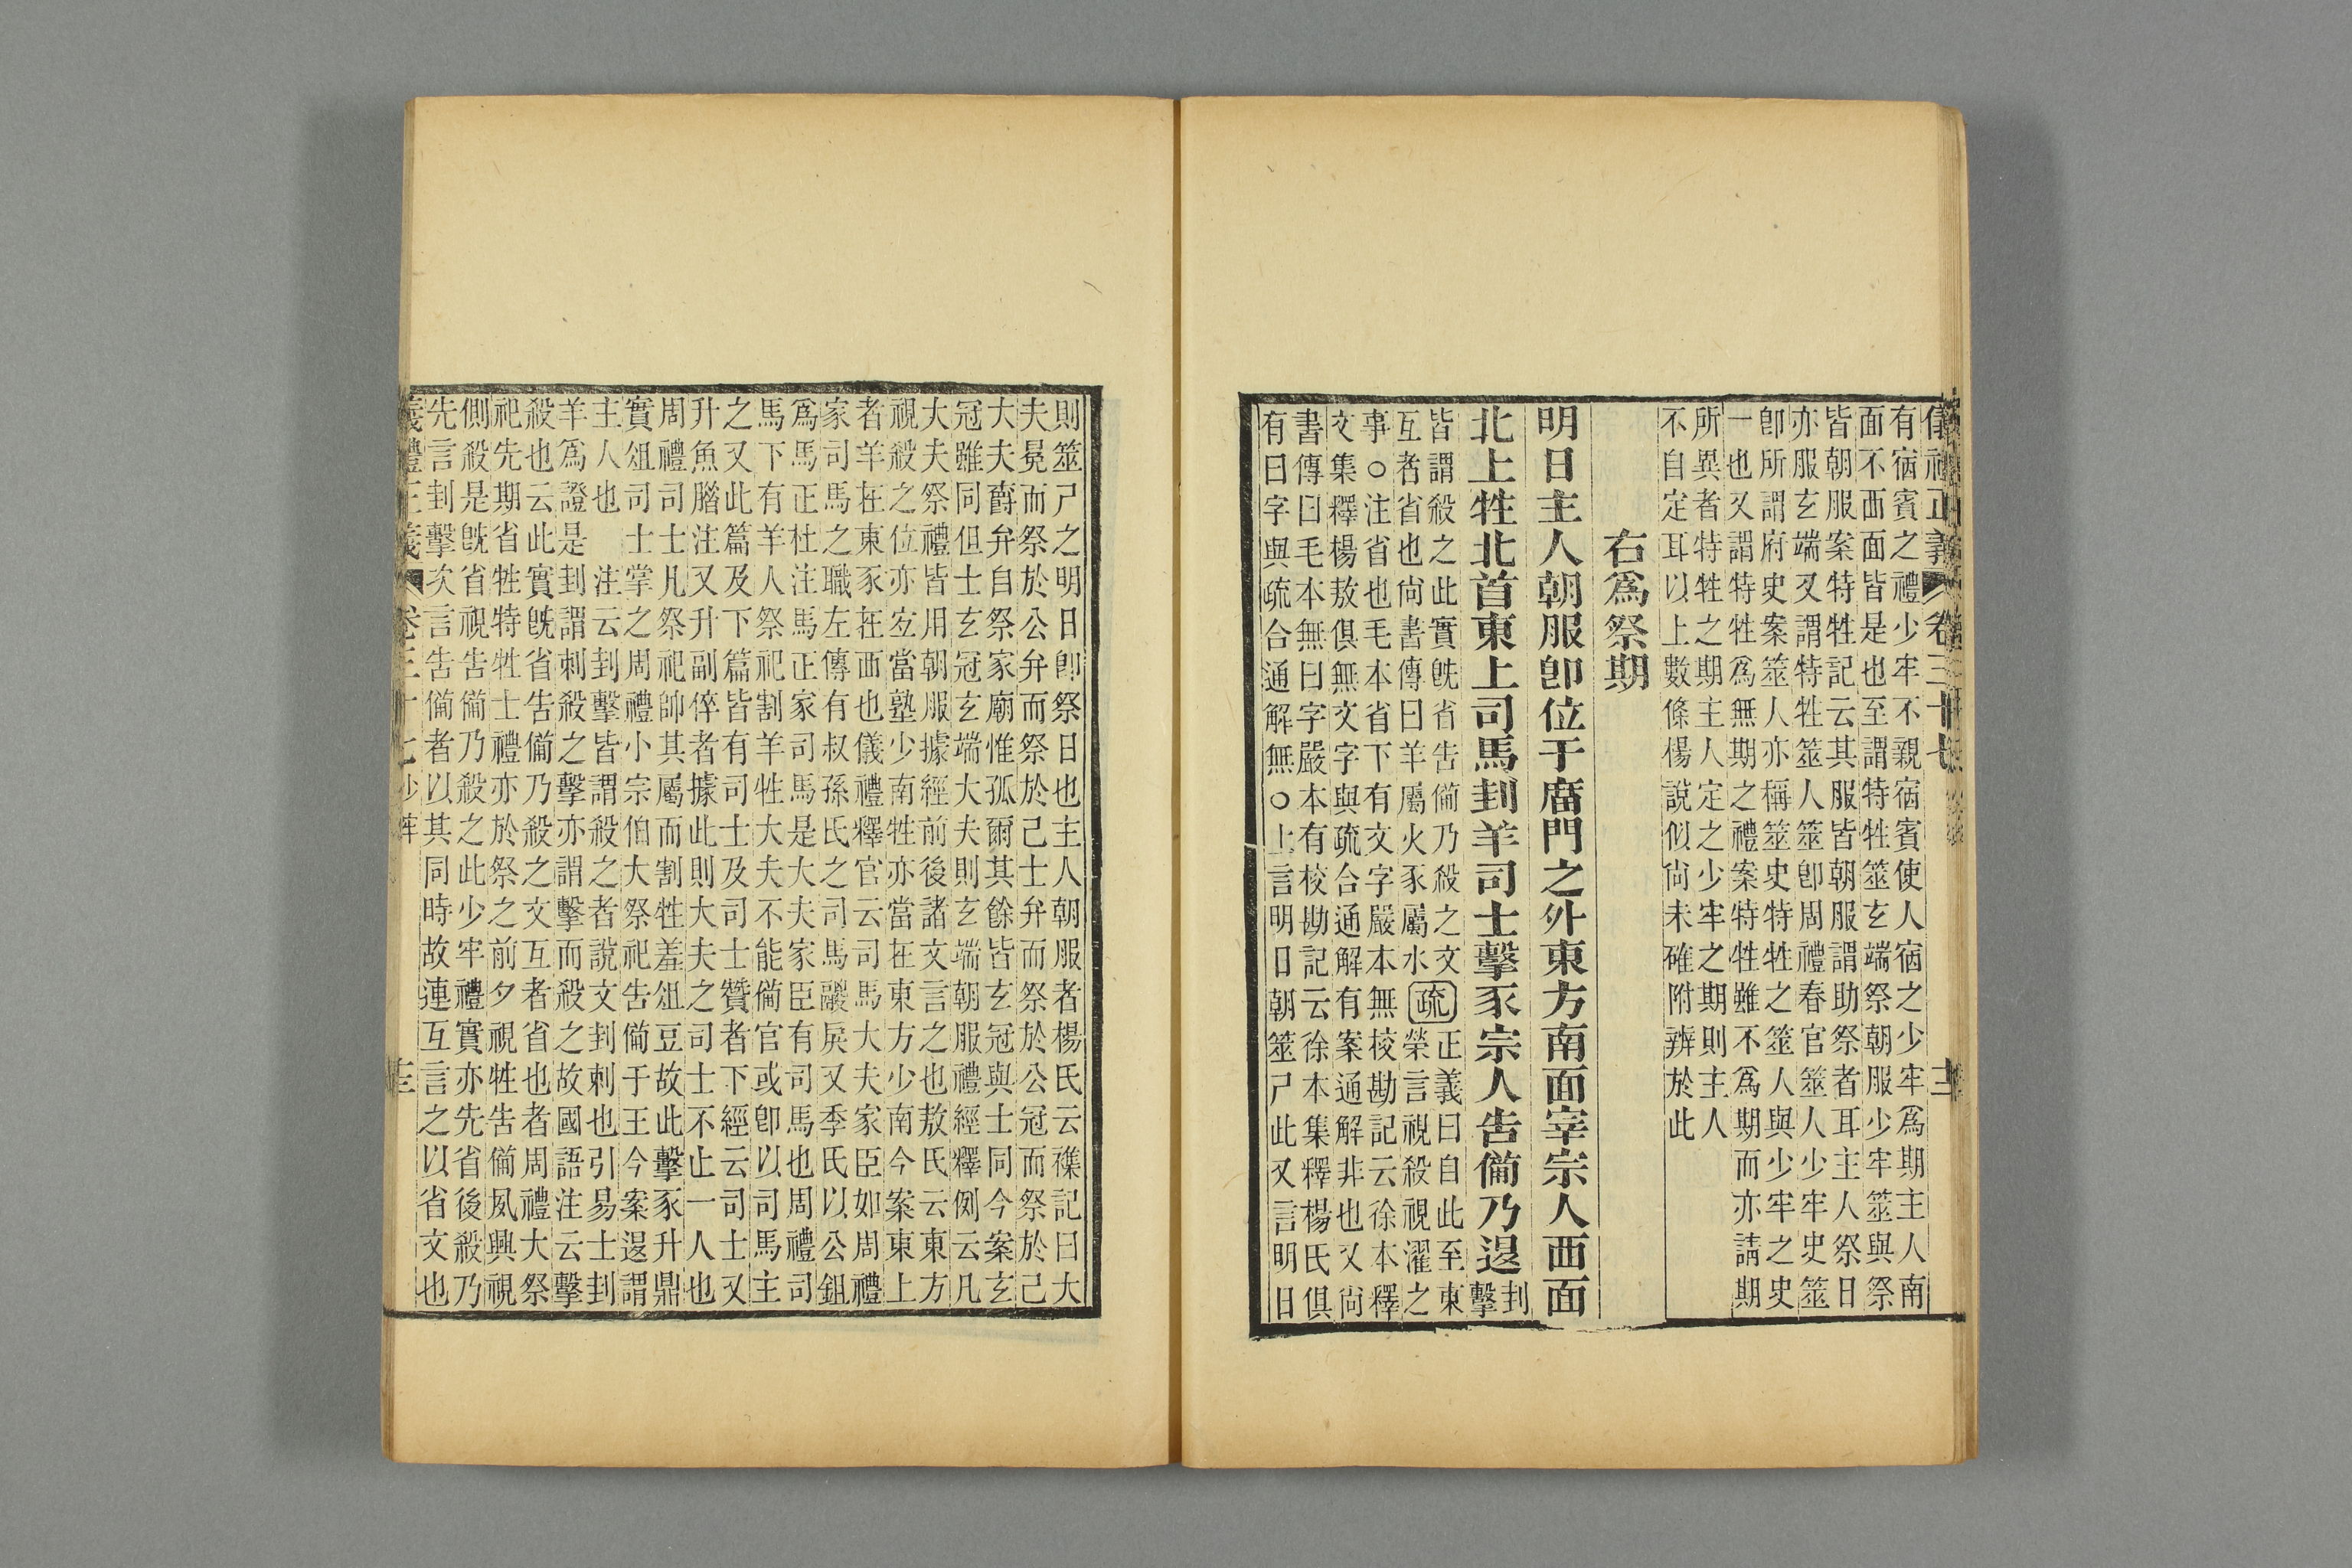 儀禮正義 卷三十七
有宿賓之禮少牢不親宿賓使人宿之少牢爲期主人南
面不西面皆是也至謂特牲筮玄端祭朝服少牢筮與祭
皆朝服案特牲記云其服皆朝服謂助祭者耳主人祭日
亦服玄端又謂特牲筮人筮卽周禮春官筮人少牢史筮
卽所謂府史案筮人亦稱筮史特牲之筮人與少牢之史
一也又謂特牲爲無期之禮案特牲雖不爲期而亦請期
所異者特牲之期主人定之少牢之期則主人
不自定耳以上數條楊說似尙未確附辨於此
右爲祭期
明日主人朝服卽位于廟門之外東方南面宰宗人西面
北上牲北首東上司馬刲羊司士擊豕宗人告備乃退
刲
擊
皆謂殺之此實旣省告備乃殺之文
互者省也尙書傳曰羊屬火豕屬水
疏
正義曰自此至東
榮言視殺視濯之
事○注省也毛本省下有文字嚴本無校勘記云徐本釋
文集釋楊敖俱無文字與疏合通解有案通解非也又尙
書傳曰毛本無曰字嚴本有校勘記云徐本集釋楊氏俱
有曰字與疏合通解無○上言明日朝筮尸此又言明日
則筮尸之明日卽祭日也主人朝服者楊氏云襍記曰大
夫冕而祭於公弁而祭於己士弁而祭於公冠而祭於己
大夫爵弁自祭家廟惟孤爾其餘皆玄冠與士同今案玄
冠雖同但士玄冠玄端大夫則玄端朝服禮經釋例云凡
大夫祭禮皆用朝服據經前後諸文言之也敖氏云東方
視殺之位亦宐當塾少南牲亦當在東方少南今案東上
者羊在東豕在西也儀禮釋官云司馬大夫家臣如周禮
家司馬之職左傳有叔孫氏之司馬鬷戾又季氏以公鉏
爲馬正杜注馬正家司馬是大夫家臣有司馬也周禮司
馬下有羊人祭祀割羊牲大夫不能備官或卽以司馬主
之又此篇及下篇皆有司士及司士贊者下經云司士又
升魚腊注又升副倅者據此則大夫之司士不止一人也
周禮司士凡祭祀帥其屬而割牲羞俎豆故此擊豕升鼎
實俎司士掌之周禮小宗伯大祭祀告備于王今案退謂
主人也 注云刲擊皆謂殺之者說文刲刺也引易士刲
羊爲證是刲謂刺殺之擊亦謂擊而殺之故國語注云擊
殺也云此實旣省告備乃殺之文互者省也者周禮大祭
祀先期省牲特牲士禮亦於祭之前夕視牲告備夙興視
側殺是旣省視告備乃殺之此少牢禮實亦先省後殺乃
先言刲擊次言告備者以其同時故連互言之以省文也